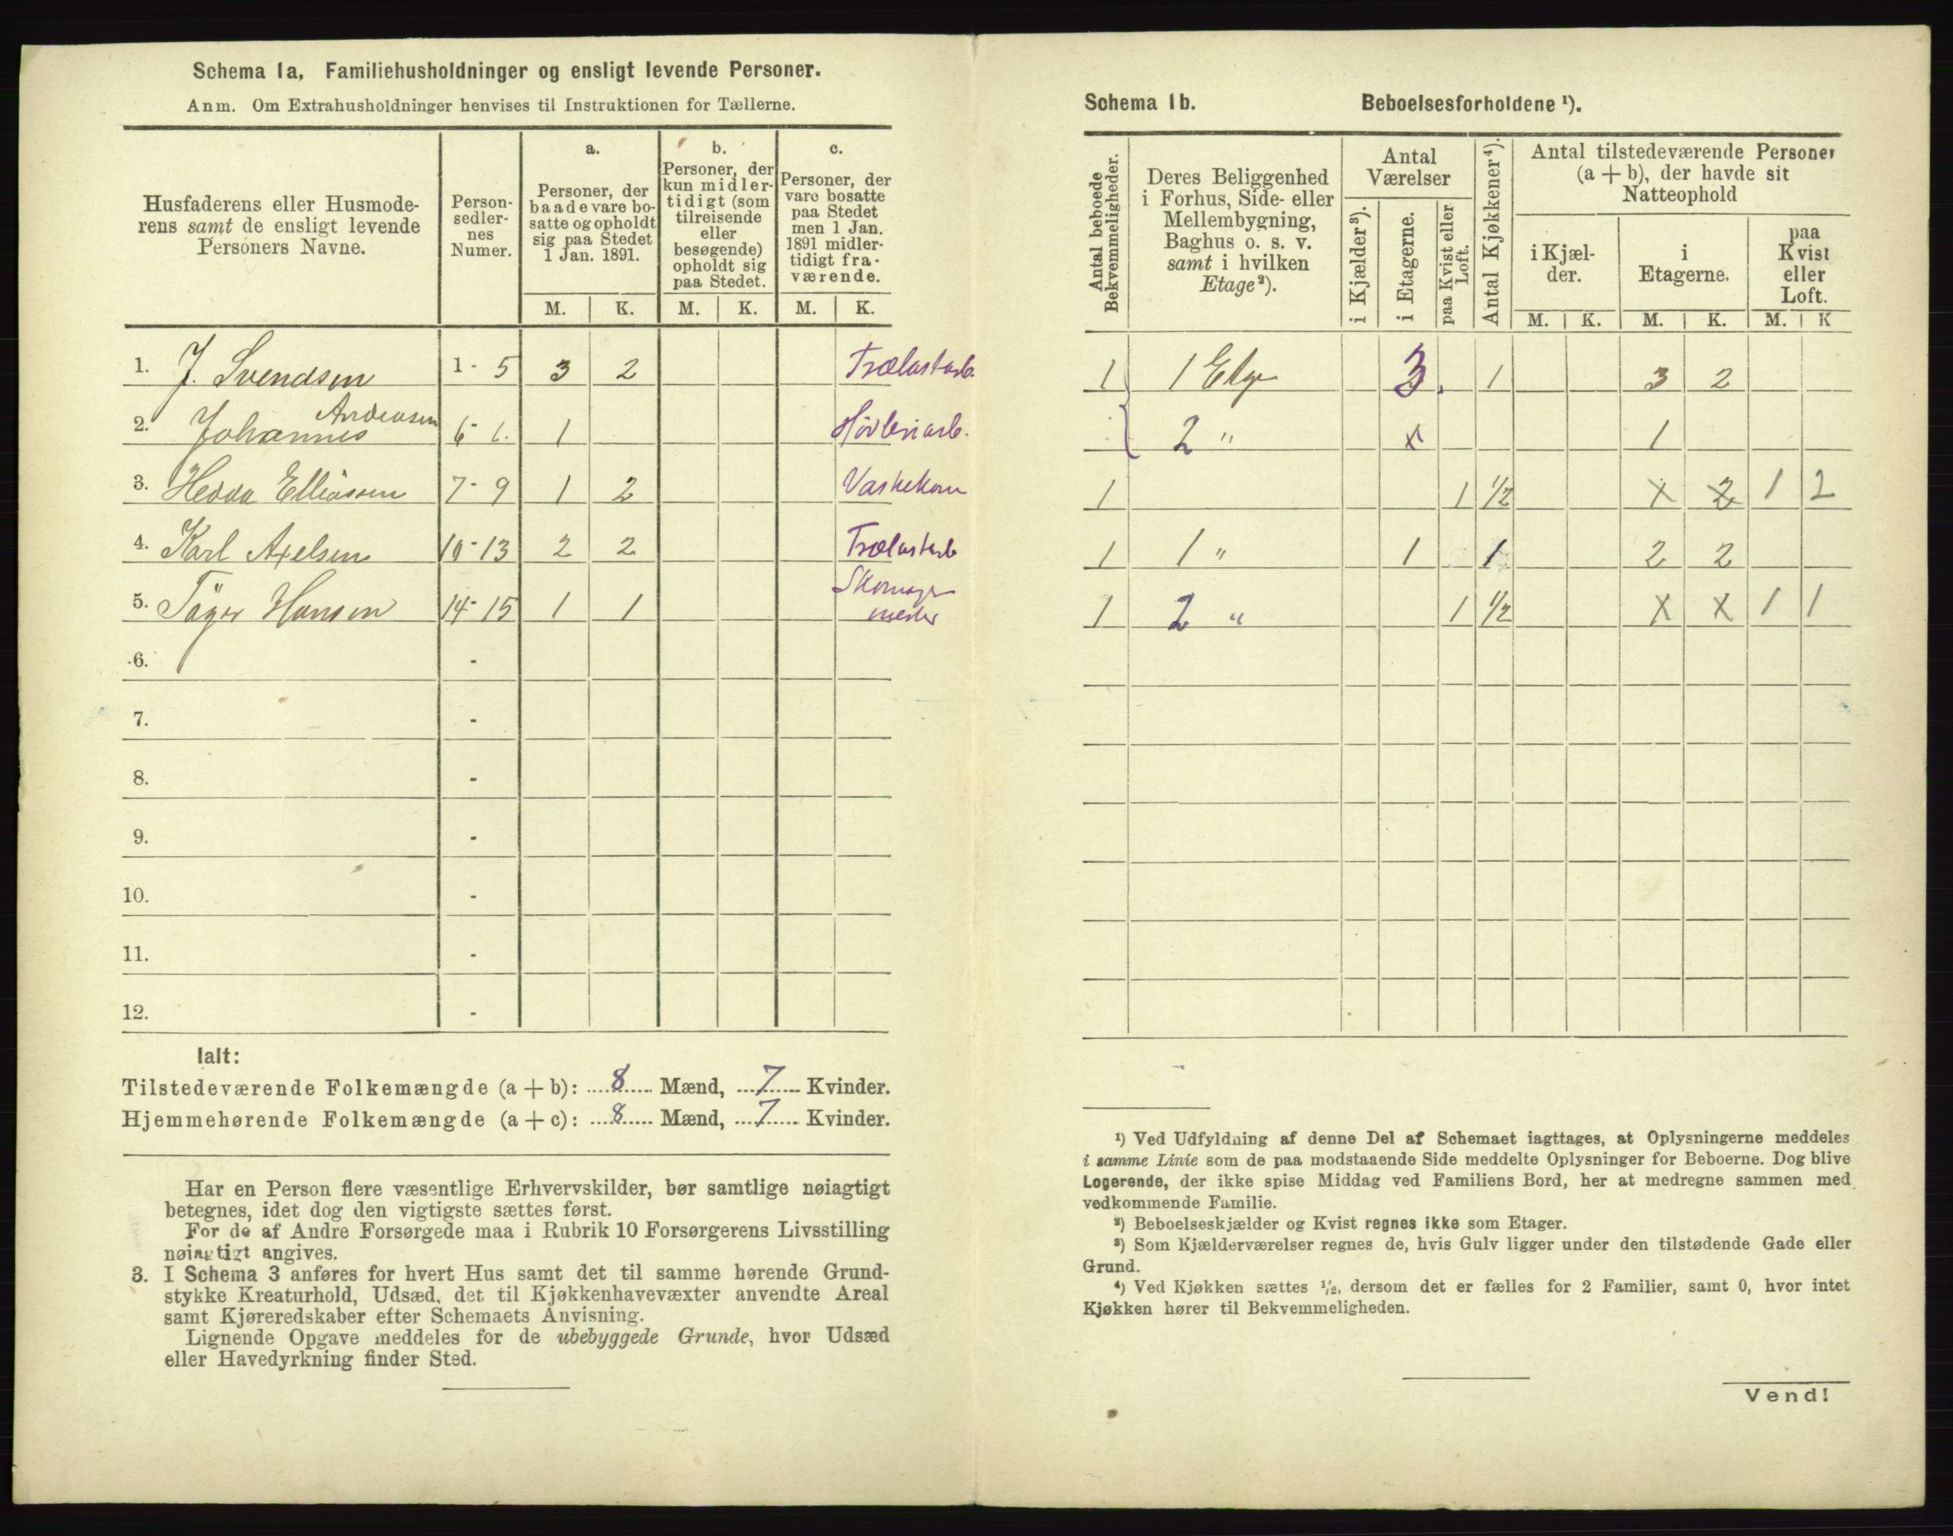 Schema 1a, Familiehusholdninger og ensligt levende Personer.
Anm. Om Extrahusholdninger henvises til Instruktionen for Tællerne.
Husfaderens eller Husmode-
rens samt de ensligt levende
Personers Navne.
Person-
sedler-
nes
Numer.
a.
Personer, der
baade vare bo-
satte og opholdt
sig paa Stedet
1 Jan. 1891.
b.
Personer, der
kun midler-
tidigt (som
tilreisende
eller
besøgende)
opholdt sig
paa Stedet.
c.
Personer, der
vare bosatte
paa Stedet
men 1 Jan.
1891 midler-
tidigt fra-
værende.
M. K. M. K. M. K.
1. J. Svendsen 1-5 3 2 Trælastarb.
2. Johannes Andersen 6-6. 1 Høvleriarb.
3. Hedda Elliassen 7-9 1 2 Vaskekom
4. Karl Axelsen 10-13 2 2 Trælastarb
5. Hansen 14-15 1 1 Skomager
mester
6. -
7. -
8. -
9. -
10. -
11. -
12. -
Ialt:
Tilstedeværende Folkemængde (a + b): 8 Mænd, 7 Kvinder.
Hjemmehørende Folkemængde (a + c): 8 Mænd, 7 Kvinder.
Har en Person flere væsentlige Erhvervskilder, bør samtlige nøiagtigt
betegnes, idet dog den vigtigste sættes først.
For de af Andre Forsørgede maa i Rubrik 10 Forsørgerens Livsstilling
nøiagtigt angives.
3. I Schema 3 anføres for hvert Hus samt det til samme hørende Grund-
stykke Kreaturhold, Udsæd, det til Kjøkkenhavevæxter anvendte Areal
samt Kjøreredskaber efter Schemaets Anvisning.
Lignende Opgave meddeles for de ubebyggede Grunde, hvor Udsæd
eller Havedyrkning finder Sted.
Schema 1b. Beboelsesforholdene ¹).
Antal beboede
Bekvemmeligheder.
Deres Beliggenhed
i Forhus, Side- eller
Mellembygning,
Baghus o. s. v.
samt i hvilken
Etage²).
Antal
Værelser
i Kjælder³).
i Etagerne.
paa Kvist eller
Loft.
Antal Kjøkkener⁴).
Antal tilstedeværende Personer
(a + b), der havde sit
Natteophold
i Kjæl-
der.
i
Etagerne.
paa
Kvist
eller
Loft.
M. K. M. K. M. K
1 1 Etge 3. 1 3 2
2 " x 1
1 1 1/2 x 2 1 2
1 1 " 1 1 2 2
1 2 " 1 1/2 x x 1 1
¹) Ved Udfyldning af denne Del af Schemaet iagttages, at Oplysningerne meddeles
i samme Linie som de paa modstaaende Side meddelte Oplysninger for Beboerne. Dog blive
Logerende, der ikke spise Middag ved Familiens Bord, her at medregne sammen med
vedkommende Familie.
²) Beboelseskjælder og Kvist regnes ikke som Etager.
³) Som Kjælderværelser regnes de, hvis Gulv ligger under den tilstødende Gade eller
Grund.
⁴) Ved Kjøkken sættes ¹/₂, dersom det er fælles for 2 Familier, samt 0, hvor intet
Kjøkken hører til Bekvemmeligheden.
Vend!